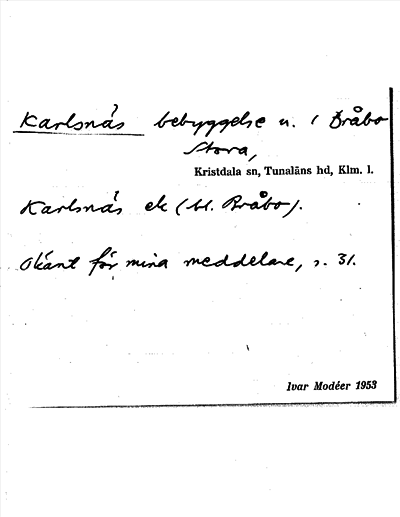 Karlsnäs bebyggelse u. / Bråbo
Stora,
Kristdala sn, Tunaläns hd, Klm. l.
Karlsnäs ek (st. Bråbo).
Okänt för mina meddelare, s. 31.
Ivar Modéer 1953